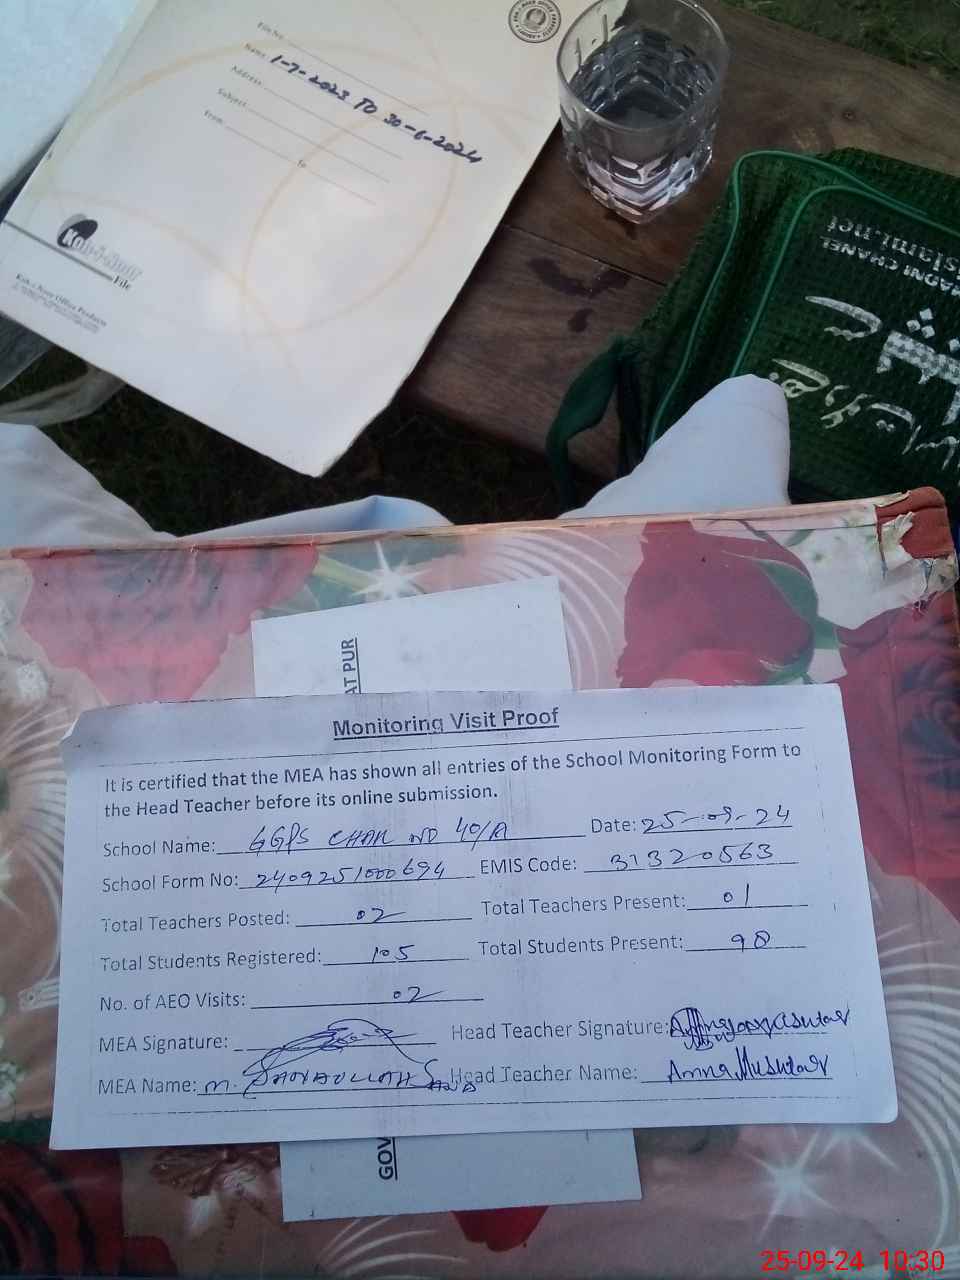 File No.
Name 1-7-2023 TO 30-6-2024
Address
Subject
From
To
Koh-i-Noor
File
Koh-i-Noor Office Products
MADNI CHANEL
AT PUR
Monitoring Visit Proof
It is certified that the MEA has shown all entries of the School Monitoring Form to
the Head Teacher before its online submission.
School Name: GGPS CHAK NO 40/A Date: 25-09-24
School Form No: 2409251000694 EMIS Code: 31320563
Total Teachers Posted: 02 Total Teachers Present: 01
Total Students Registered: 105 Total Students Present: 98
No. of AEO Visits: 02
MEA Signature: Head Teacher Signature:
MEA Name: M. Head Teacher Name: Amna Mushtaq
GOV
25-09-24 10:30